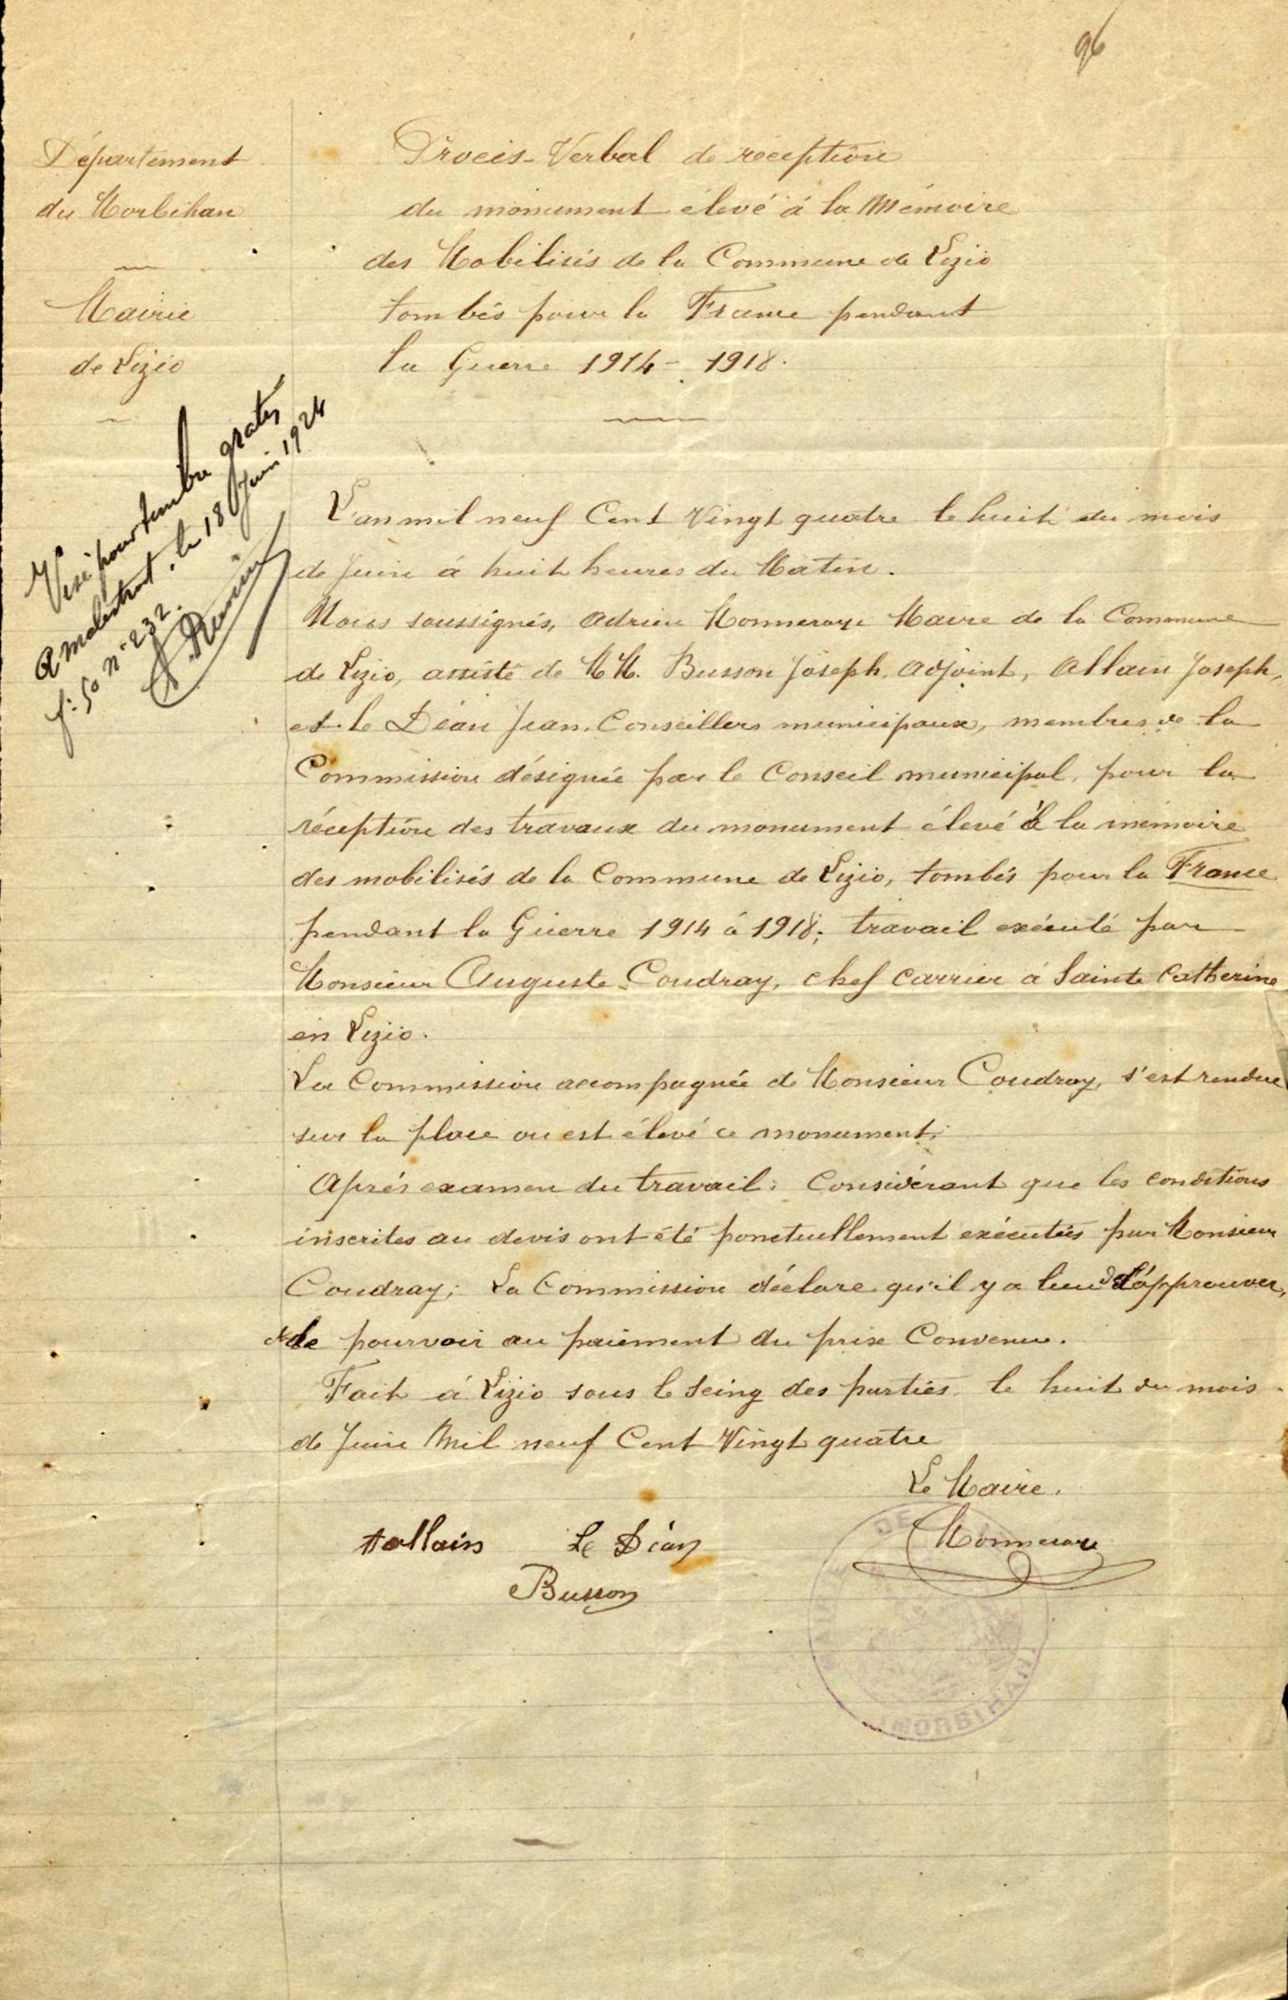 96
Département
du Morbihan
Mairie
de Lizio
Procès-Verbal de réception
du monument élevé à la Mémoire
des Mobilisés de la Commune de Lizio
tombés pour la France pendant
la Guerre 1914 - 1918.
Visé pour timbre gratis
A Malestroit, le 18 Juin 1924
f: 50 n° 232.
L'an mil neuf Cent Vingt quatre le huit du mois
de Juin à huit heures du Matin.
Nous soussignés, Adrien Monneraye Maire de la Commune
de Lizio, assisté de M.M. Busson Joseph, adjoint, Allain Joseph,
et le Déan Jean, Conseillers municipaux, membres de la
Commission désignée par le Conseil municipal, pour la
réception des travaux du monument élevé à la mémoire
des mobilisés de la Commune de Lizio, tombés pour la France
pendant la Guerre 1914 à 1918; travail exécuté par
Monsieur Auguste Coudray, chef carrier à Sainte Catherine
en Lizio.
La Commission accompagnée de Monsieur Coudray, s'est rendue
sur la place ou est élevé ce monument;
Après examen du travail; Considérant que les conditions
inscrites au devis ont été ponctuellement exécutées par Monsieur
Coudray; La Commission déclare qu'il y a lieu de l'approuver,
et de pourvoir au paiement du prix Convenu.
Fait à Lizio sous le seing des parties le huit du mois
de Juin Mil neuf Cent Vingt quatre
Le Maire.
Allain Le Déan Monneraye
Busson
MAIRIE DE
(MORBIHAN)